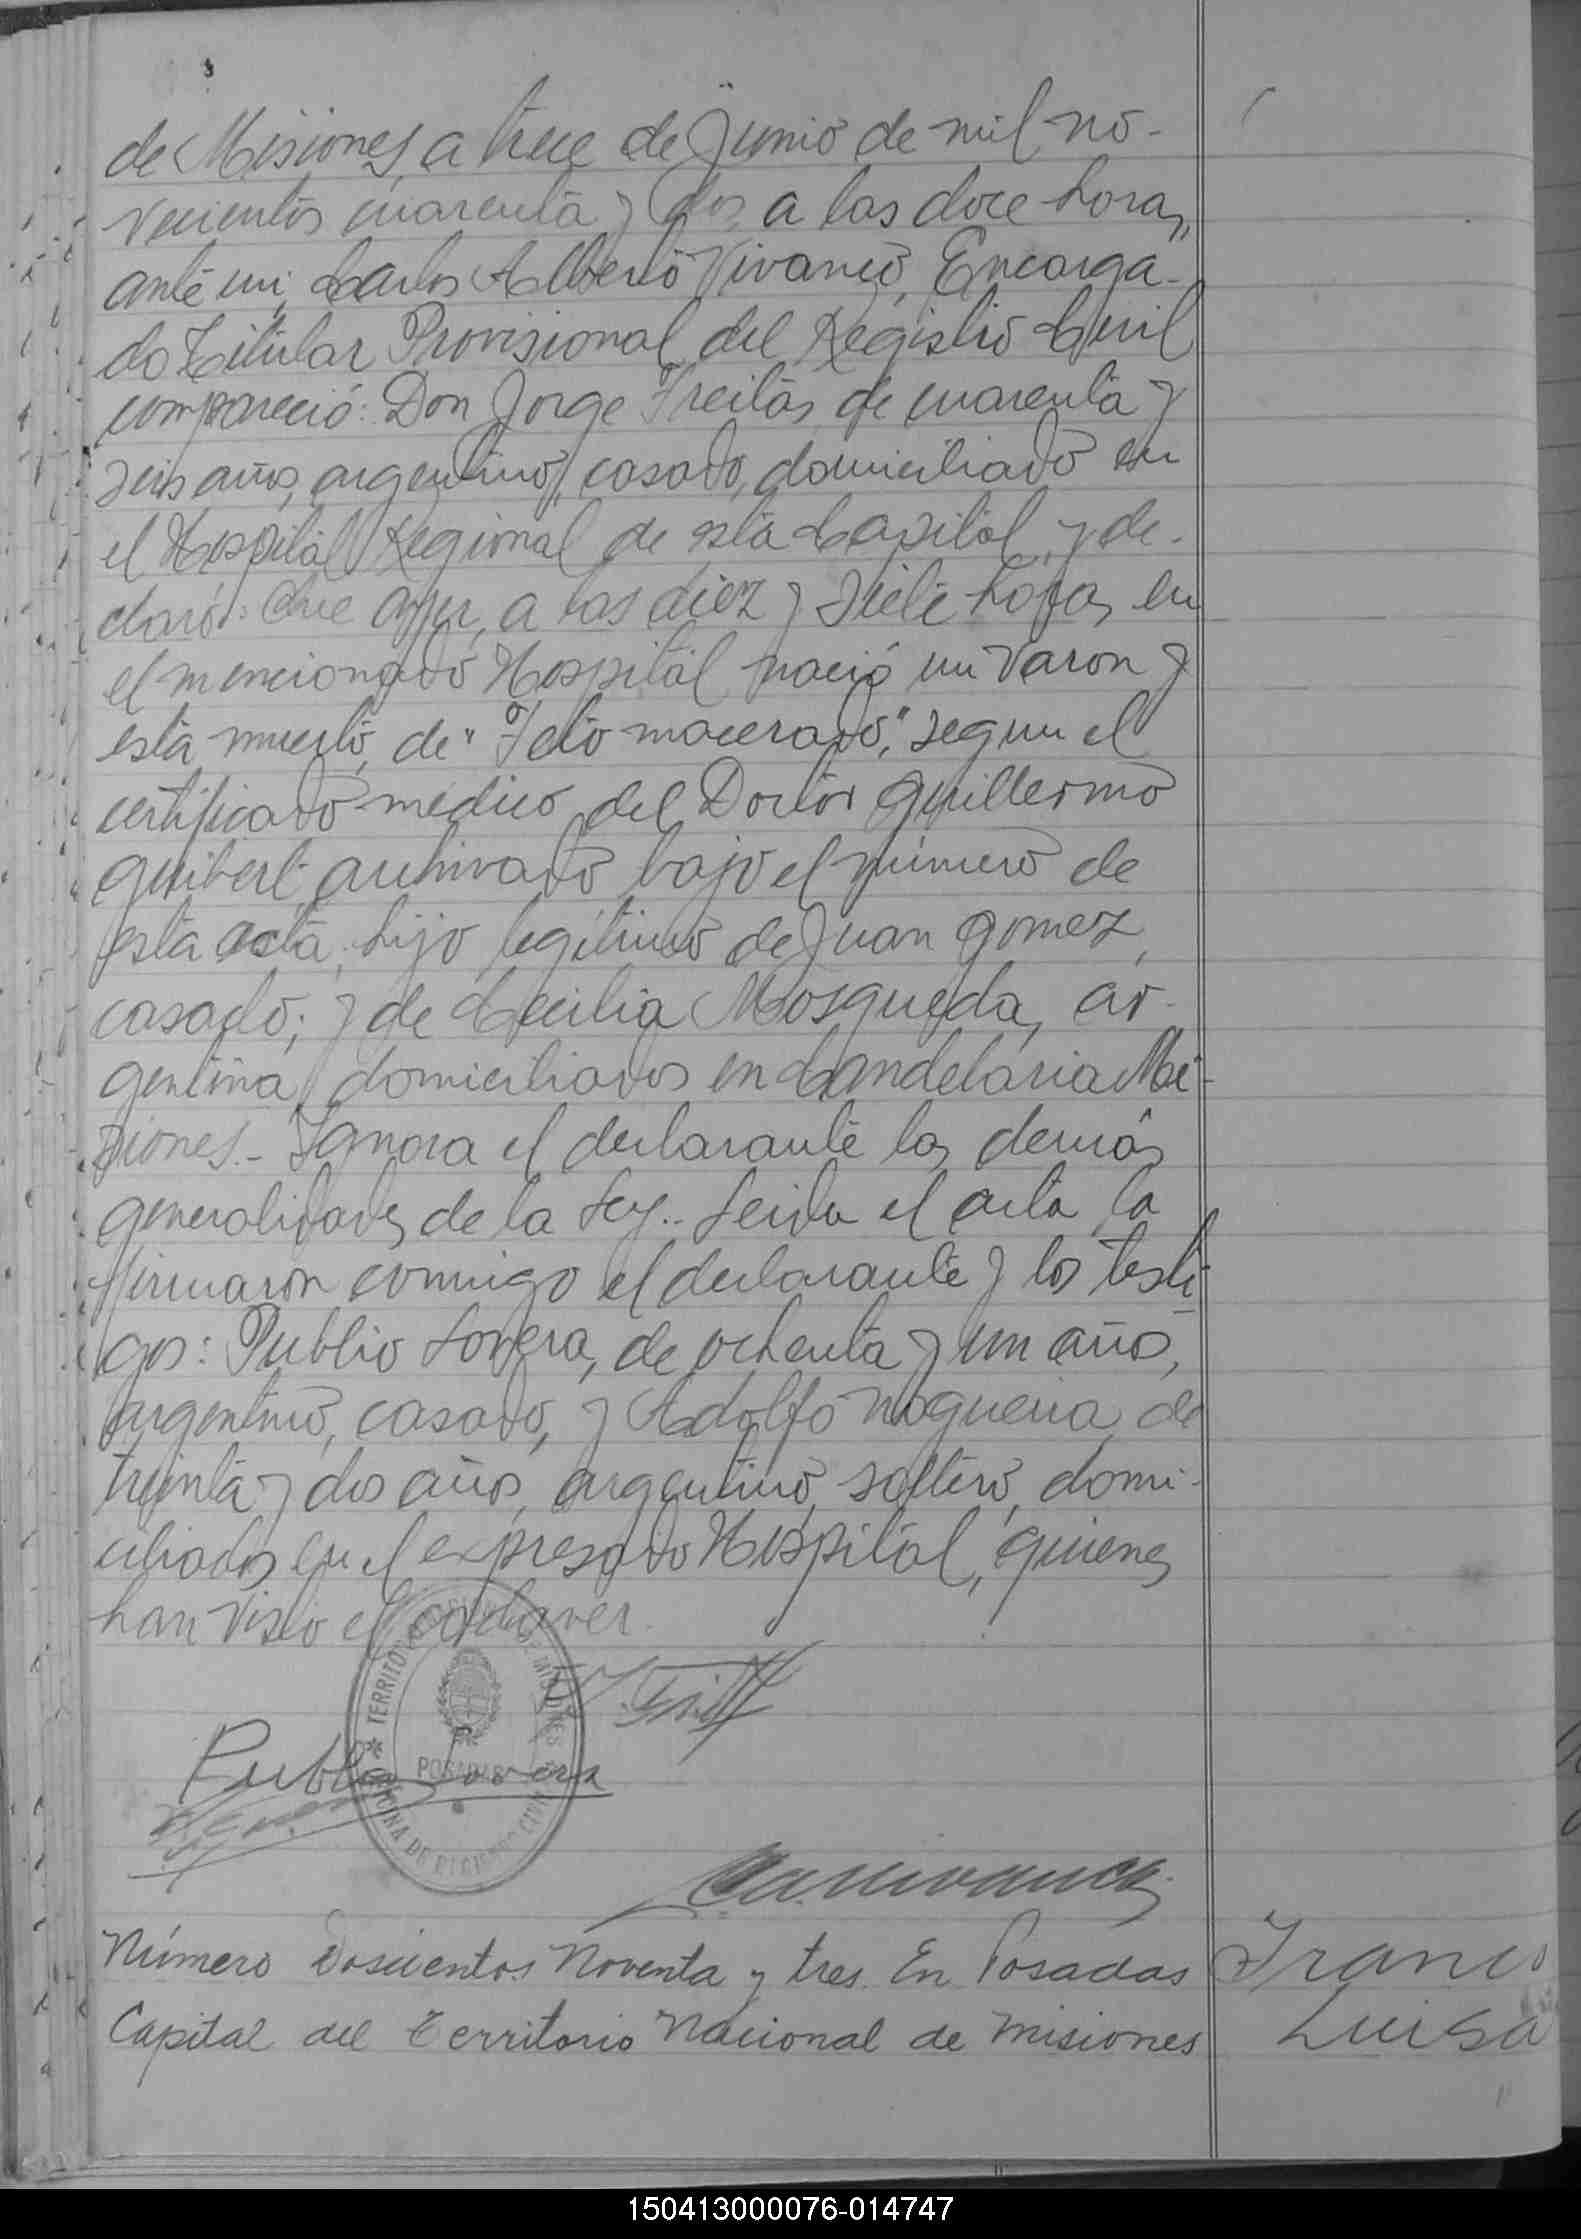 de Misiones, a trece de Junio de mil no-
vecientos cuarenta y dos, a las doce horas,
ante mi, Carlos Alberto Vivanco, Encarga-
do Titular Provisional del Registro Civil
compareció: Don Jorge Freitas, de cuarenta y
seis años, argentino, casado, domiciliado en
el Hospital Regional de esta Capital, y de-
claró: Que ayer, a las diez y siete horas, en
el mencionado Hospital nació un varon y
está muerto, de "Feto macerado," segun el
certificado médico del Doctor Guillermo
Guibert, archivado bajo el número de
esta acta, hijo legítimo de Juan Gomez,
casado; y de Cecilia Mosqueda, ar-
gentina, domiciliados en Candelaria Mi-
siones.- Ignora el declarante las demás
generalidades de la Ley.- Leida el acta la
firmaron conmigo el declarante y los testi-
gos: Publio Lovera, de ochenta y un años,
argentino, casado, y Adolfo Nogueira, de
treinta y dos años, argentino, soltero, domi-
ciliados en el expresado Hospital, quienes
han visto el cadaver.
TERRITORIO NACIONAL DE MISIONES
POSADAS
OFICINA DE REGISTRO CIVIL
Publio Lovera
Número Doscientos Noventa y tres. En Posadas
Capital del Territorio Nacional de Misiones
Franco
Luisa
150413000076-014747